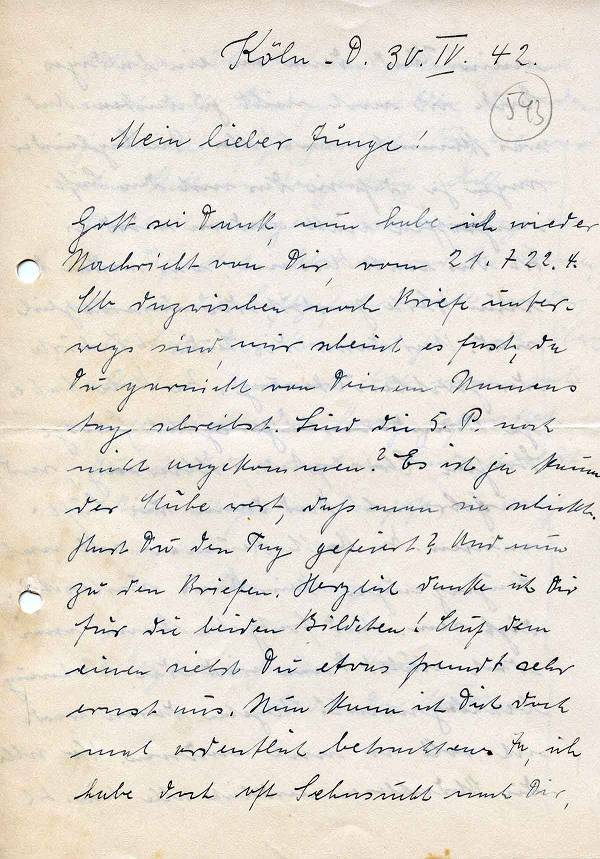 Köln - D. 30. IV. 42.
543
Mein lieber Junge!
Gott sei Dank, nun habe ich wieder
Nachricht von Dir, vom 21. + 22. 4.
Ob dazwischen noch Briefe unter-
wegs sind, mir scheint es fast, da
Du garnicht von Deinem Namens
tag schreibst. Sind die 5. P. noch
nicht angekommen? Es ist ja kaum
der Mühe wert, daß man sie schickt.
Hast Du den Tag gefeiert? Und nun
zu den Briefen. Herzlich danke ich Dir
für die beiden Bildchen! Auf dem
einen siehst Du etwas fremdt sehr
ernst aus. Nun kann ich Dich doch
mal ordentlich betrachten. Ja, ich
habe doch oft Sehnsucht nach Dir,